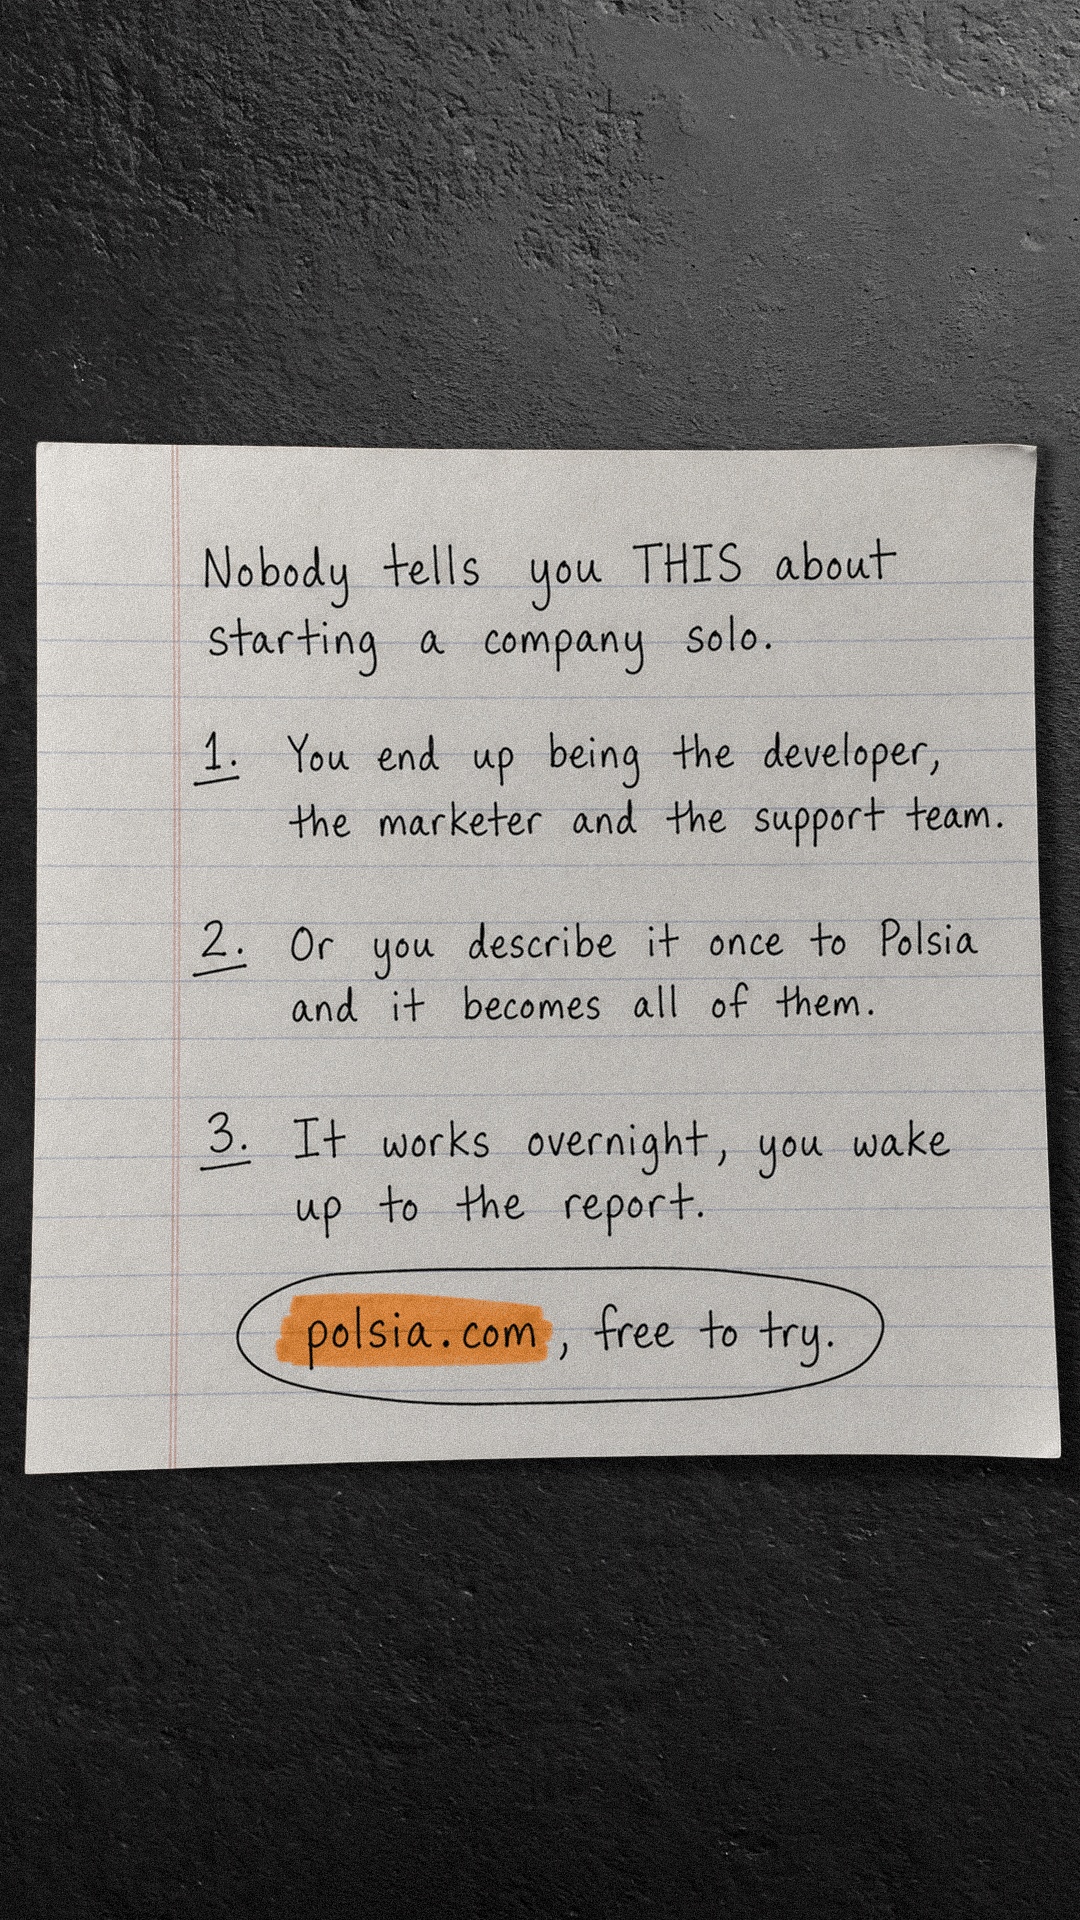 Nobody tells you THIS about
starting a company solo.
1. You end up being the developer,
the marketer and the support team.
2. Or you describe it once to Polsia
and it becomes all of them.
3. It works overnight, you wake
up to the report.
polsia.com, free to try.